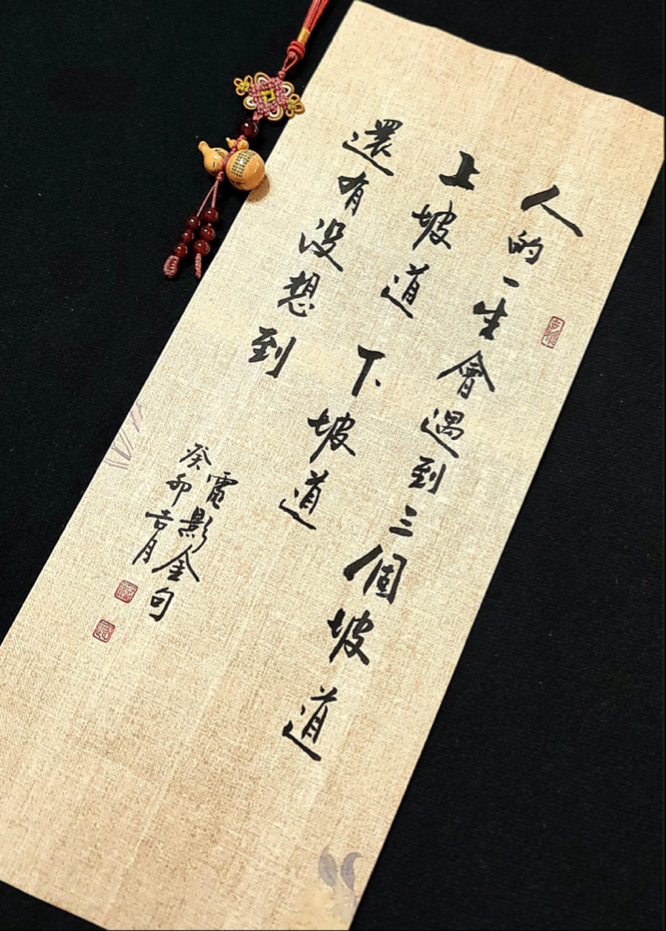 人的一生會遇到三個坡道
上坡道 下坡道
還有没想到
電影金句
癸卯吉月